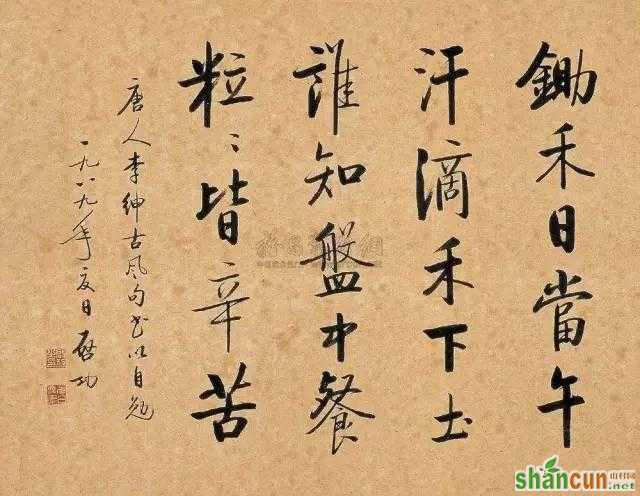 鋤禾日當午
汗滴禾下土
誰知盤中餐
粒〻皆辛苦
唐人李紳古風句書以自勉
一九八九年夏日 啓功
山村网
shancun
.net